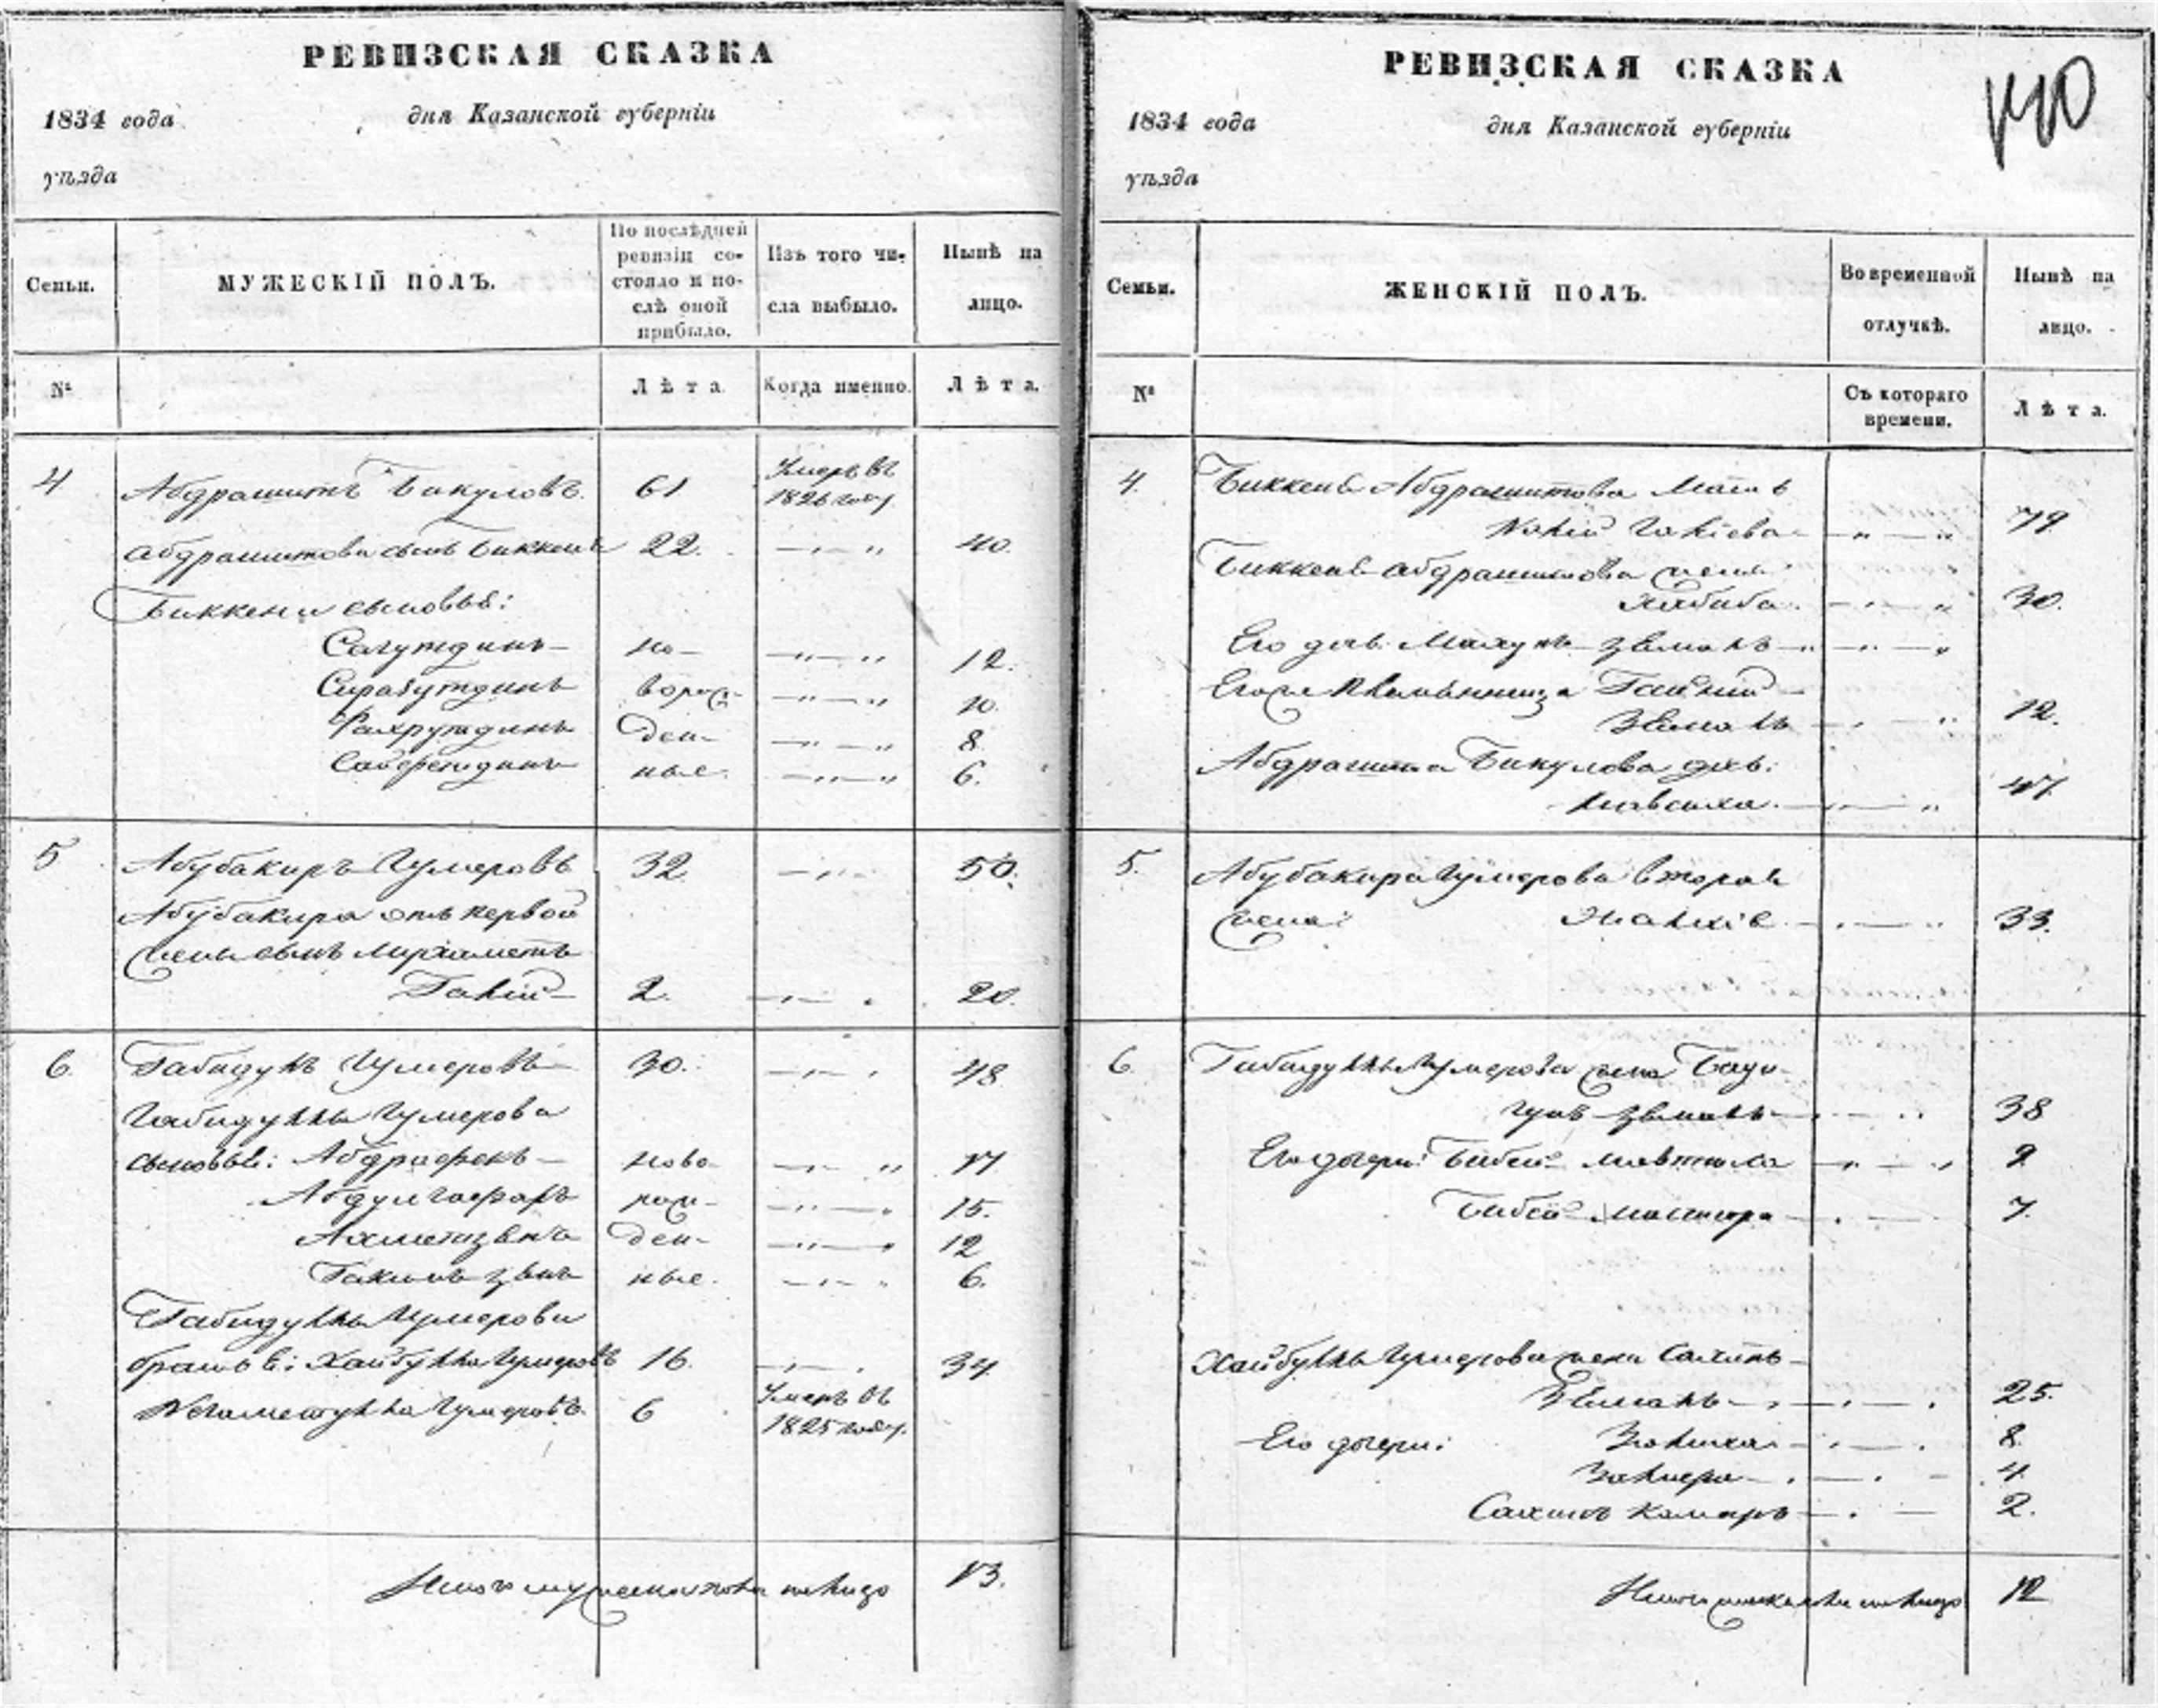 РЕВИЗСКАЯ СКАЗКА
1834 года
дня Казанской губерніи
уѣзда
Семьи.
МУЖЕСКІЙ ПОЛЪ.
По послѣдней ревизіи со-
стояло и по-
слѣ оной
прибыло.
Изъ того чи-
сла выбыло.
Нынѣ на
лицо.
№
Лѣта
Когда именно.
Лѣта.
4 Абдрашитъ Бикуловъ. 61 Умеръ въ
1826 году
Абдрашитова сынъ Биккеня 22. 40.
Биккени сыновья:
Сагутдинъ но- 12.
Сиразутдинъ ворож- 10.
Фахрутдинъ ден- 8
Сайфетдинъ ные. 6.
5 Абубакиръ Гумеровъ 32 50.
Абубакира отъ первой
жены сынъ Мухаметъ
Галій 2. 20.
6. Габидулъ Гумеровъ 30. 48
Габидуллы Гумерова
сыновья: Абдрафекъ ново 17
Абдулгафаръ рож- 15.
Ахметзянъ ден- 12
Гакимъ зянъ ные. 6.
Габидуллы Гумерова
братья: Хайбулла Гумеровъ 16. 34
Негаметулла Гумеровъ. 6 Умеръ въ
1825 году.
Итого мужеска пола на лицо 13.
РЕВИЗСКАЯ СКАЗКА
1834 года
дня Казанской губерніи
уѣзда
Семьи.
ЖЕНСКІЙ ПОЛЪ.
Во временной
отлучкѣ.
Нынѣ на
лицо.
№
Съ котораго
времени.
Лѣта.
4. Биккени Абдрашитова мать
79
Биккени Абдрашитова жена
Хабиба 30.
Его дочь
Его же племянница
Земалъ 12.
Абдрашита Бикулова дочь:
47
5. Абубакира Гумерова вторая
жена: 33.
6. Габидуллы Гумерова жена Бади-
гулъ земалъ 38
Его дочери: Биби 9
Биби 7.
Хайбуллы Гумерова жена Сахипъ
Земалъ 25.
Его дочери: 8.
4.
Сахипъ Камаръ 2.
Итого женска пола на лицо 12